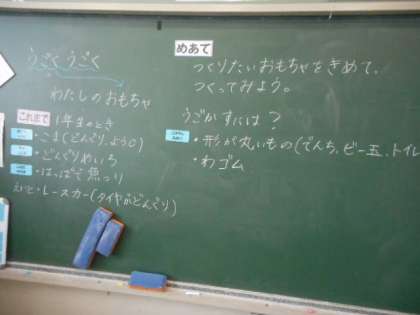 うごくうごく
わたしのおもちゃ
これまで
1年生のとき
・こま(どんぐり、ようじ)
・どんぐりめいろ
・はっぱで魚つり
・レースカー(タイヤがどんぐり)
めあて
つくりたいおもちゃをきめて、
つくってみよう。
うごかすには?
・形が丸いもの(でんち、ビー玉、トイレ
・わゴム